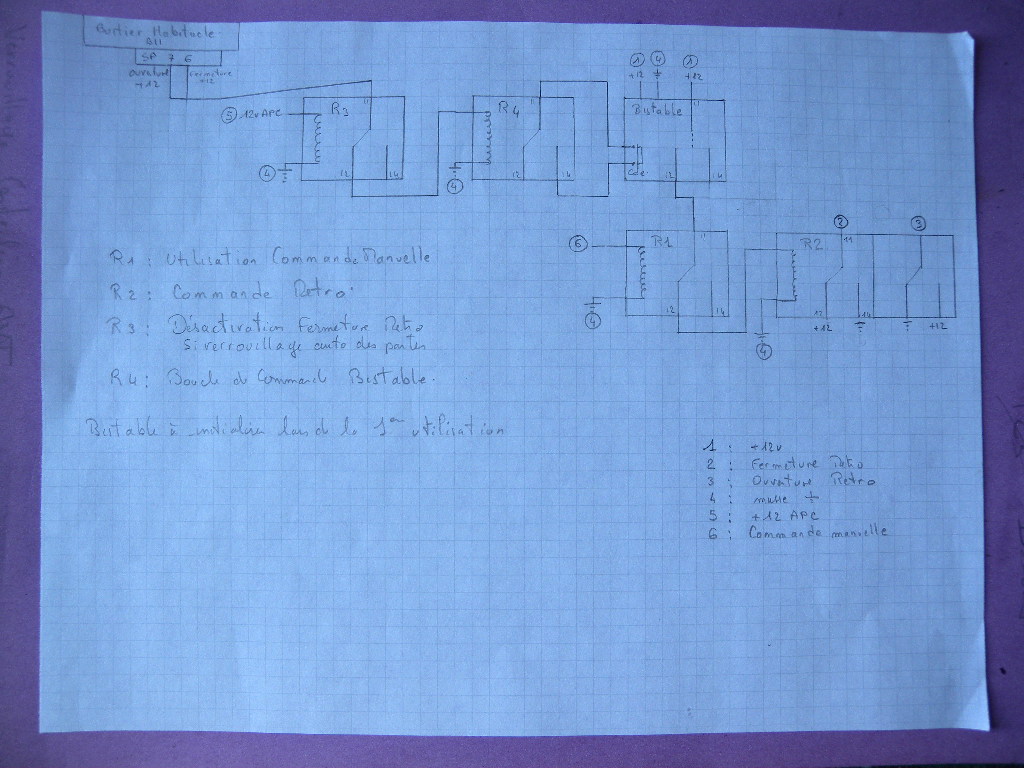 Boitier Habitacle
BII
5P 7 6
Ouverture +12
Fermeture +12
5 12v APC
R3
11
4
12 14
R4
11
4
12 14
1 4 1
+12 +12
Bistable
Cde
12 14
6
R1
11
4
12 14
2 3
R2
11
4
12 14
+12 +12
R1 : Utilisation Commande Manuelle
R2 : Commande Retro
R3 : Désactivation Fermeture Retro
Si verrouillage auto des portes
R4 : Boucle de Command Bistable.
Bistable à initialiser lors de la 1ère utilisation
1 : +12v
2 : Fermeture Retro
3 : Ouverture Retro
4 : masse
5 : +12 APC
6 : Commande manuelle